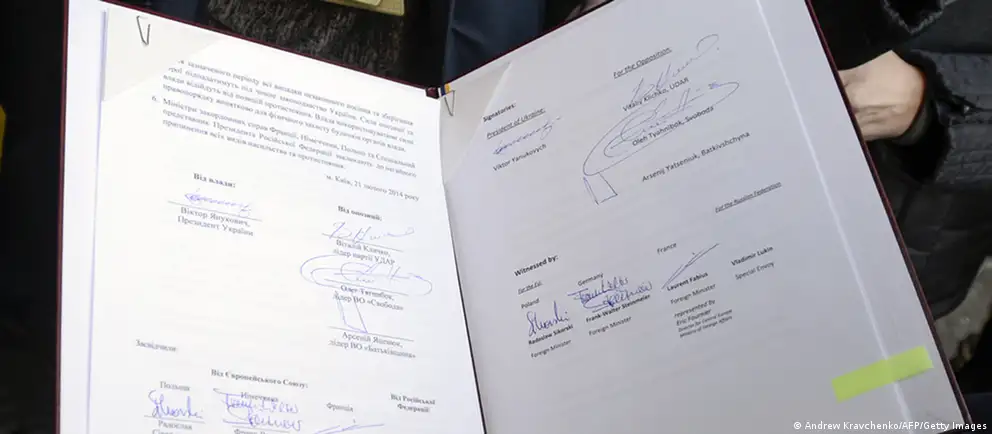 зазначеного періоду всі випадки незаконного носіння та зберігання
зброї підпадатимуть під чинне законодавство України. Сили опозиції та
влади відійдуть від позицій протистояння. Влада використовуватиме сили
правопорядку виключно для фізичного захисту будинків органів влади.
6. Міністри закордонних справ Франції, Німеччини, Польщі та Спеціальний
представник Президента Російської Федерації закликають до негайного
припинення всіх видів насильства та протистояння.
м. Київ, 21 лютого 2014 року
Від влади:
Віктор Янукович,
Президент України
Від опозиції:
Віталій Кличко,
лідер партії УДАР
Олег Тягнибок,
лідер ВО «Свобода»
Арсеній Яценюк,
лідер ВО «Батьківщина»
Засвідчили:
Від Європейського Союзу:
Від Російської
Федерації
Польща
Німеччина
Франція
Радослав
Signatories:
President of Ukraine:
Viktor Yanukovych
For the Opposition:
Vitaliy Klichko, UDAR
Oleh Tyahnibok, Svoboda
Arsenij Yatseniuk, Batkivshchyna
Witnessed by:
For the EU:
For the Russian Federation:
Poland
Germany
France
Radoslaw Sikorski
Foreign Minister
Frank-Walter Steinmeier
Foreign Minister
Laurent Fabius
Foreign Minister
represented by
Eric Fournier
Director for Central Europe
Ministry of Foreign Affairs
Vladimir Lukin
Special Envoy
Andrew Kravchenko/AFP/Getty Images